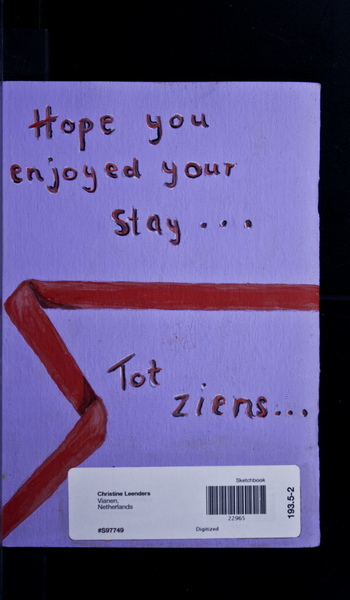 Hope you
enjoyed your
stay...
Tot
ziens...
Sketchbook
Christine Leenders
Vianen,
Netherlands
22965
193.5-2
#S97749
Digitized